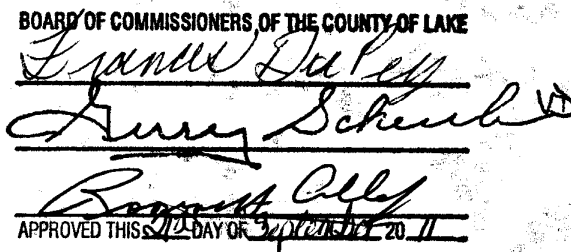 BOARD OF COMMISSIONERS OF THE COUNTY OF LAKE
Frances DuPey
Gerry Scheub
APPROVED THIS 21st DAY OF September 20 11